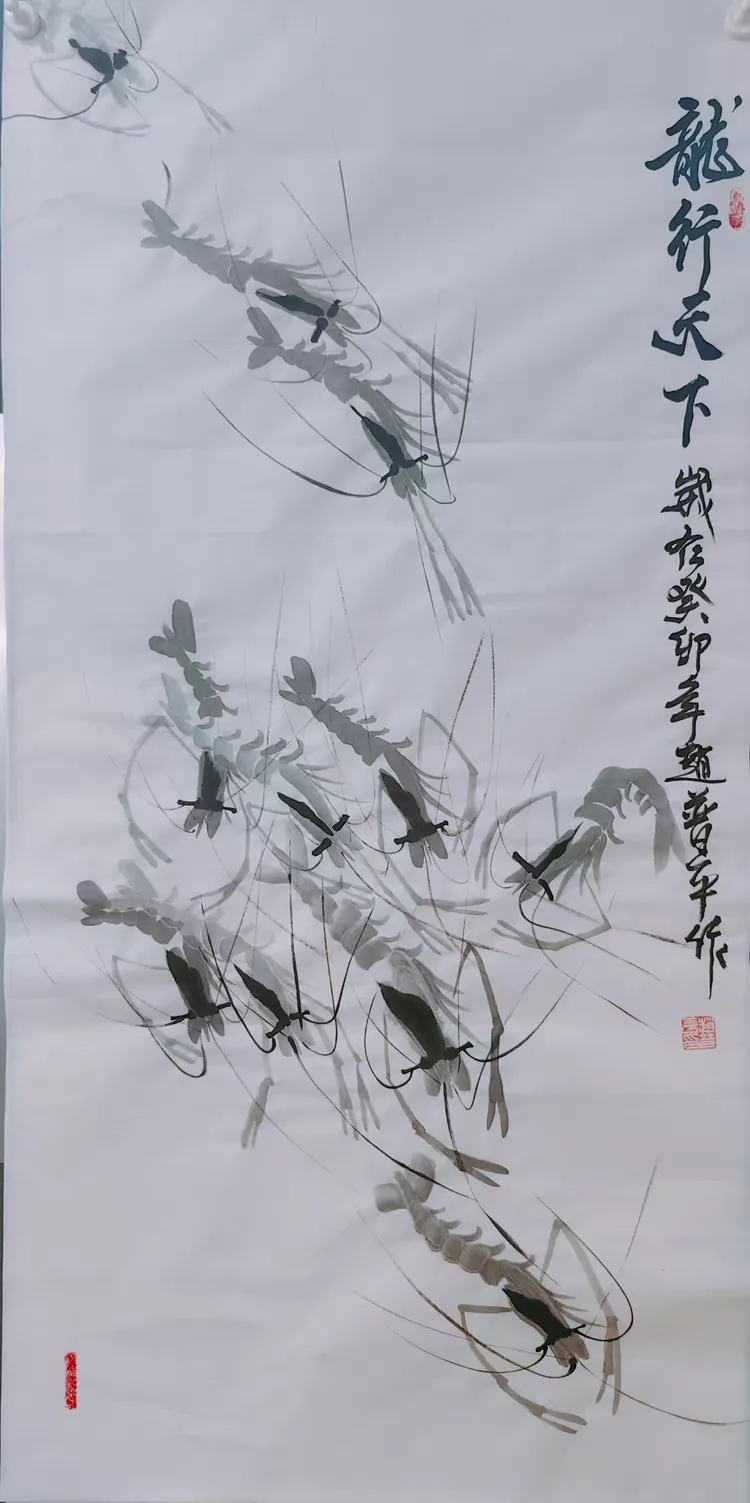 龍行天下歲在癸卯年趙普平作